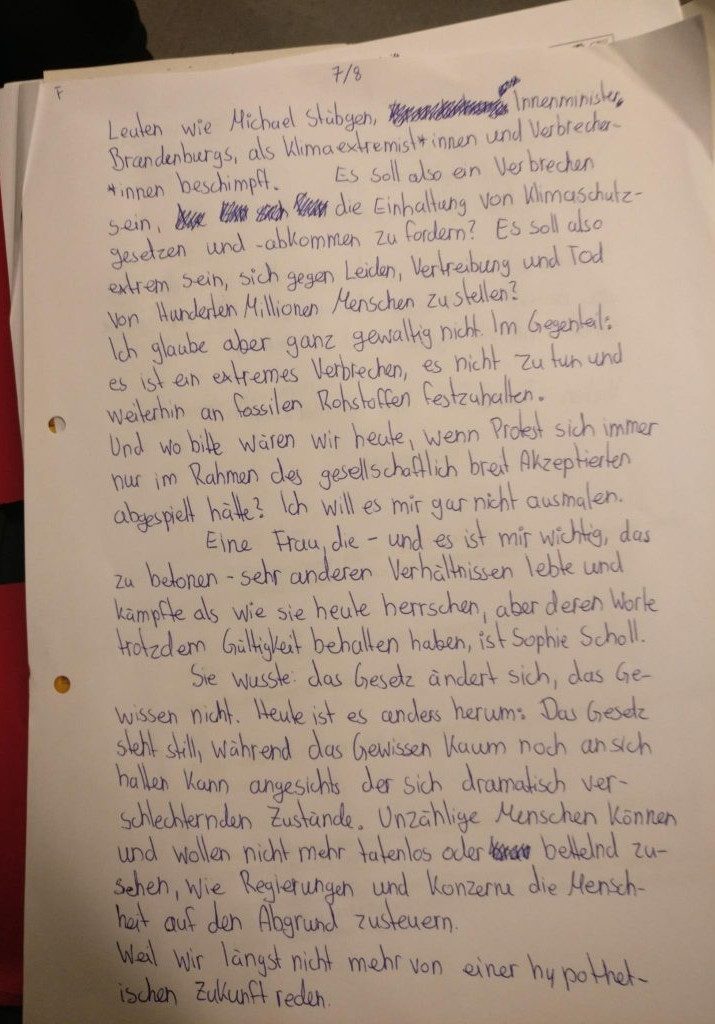 F
7/8
Leuten wie Michael Stübgen, Innenminister
Brandenburgs, als Klimaextremist*innen und Verbrecher-
*innen beschimpft. Es soll also ein Verbrechen
sein, die Einhaltung von Klimaschutz-
gesetzen und -abkommen zu fordern? Es soll also
extrem sein, sich gegen Leiden, Vertreibung und Tod
von Hunderten Millionen Menschen zu stellen?
Ich glaube aber ganz gewaltig nicht. Im Gegenteil:
es ist ein extremes Verbrechen, es nicht zu tun und
weiterhin an fossilen Rohstoffen festzuhalten.
Und wo bitte wären wir heute, wenn Protest sich immer
nur im Rahmen des gesellschaftlich breit Akzeptierten
abgespielt hätte? Ich will es mir gar nicht ausmalen.
Eine Frau, die - und es ist mir wichtig, das
zu betonen - sehr anderen Verhältnissen lebte und
kämpfte als wie sie heute herrschen, aber deren Worte
trotzdem Gültigkeit behalten haben, ist Sophie Scholl.
Sie wusste: das Gesetz ändert sich, das Ge-
wissen nicht. Heute ist es anders herum: Das Gesetz
steht still, während das Gewissen kaum noch an sich
halten kann angesichts der sich dramatisch ver-
schlechternden Zustände. Unzählige Menschen können
und wollen nicht mehr tatenlos oder bettelnd zu-
sehen, wie Regierungen und Konzerne die Mensch-
heit auf den Abgrund zusteuern.
Weil wir längst nicht mehr von einer hypothet-
ischen Zukunft reden.